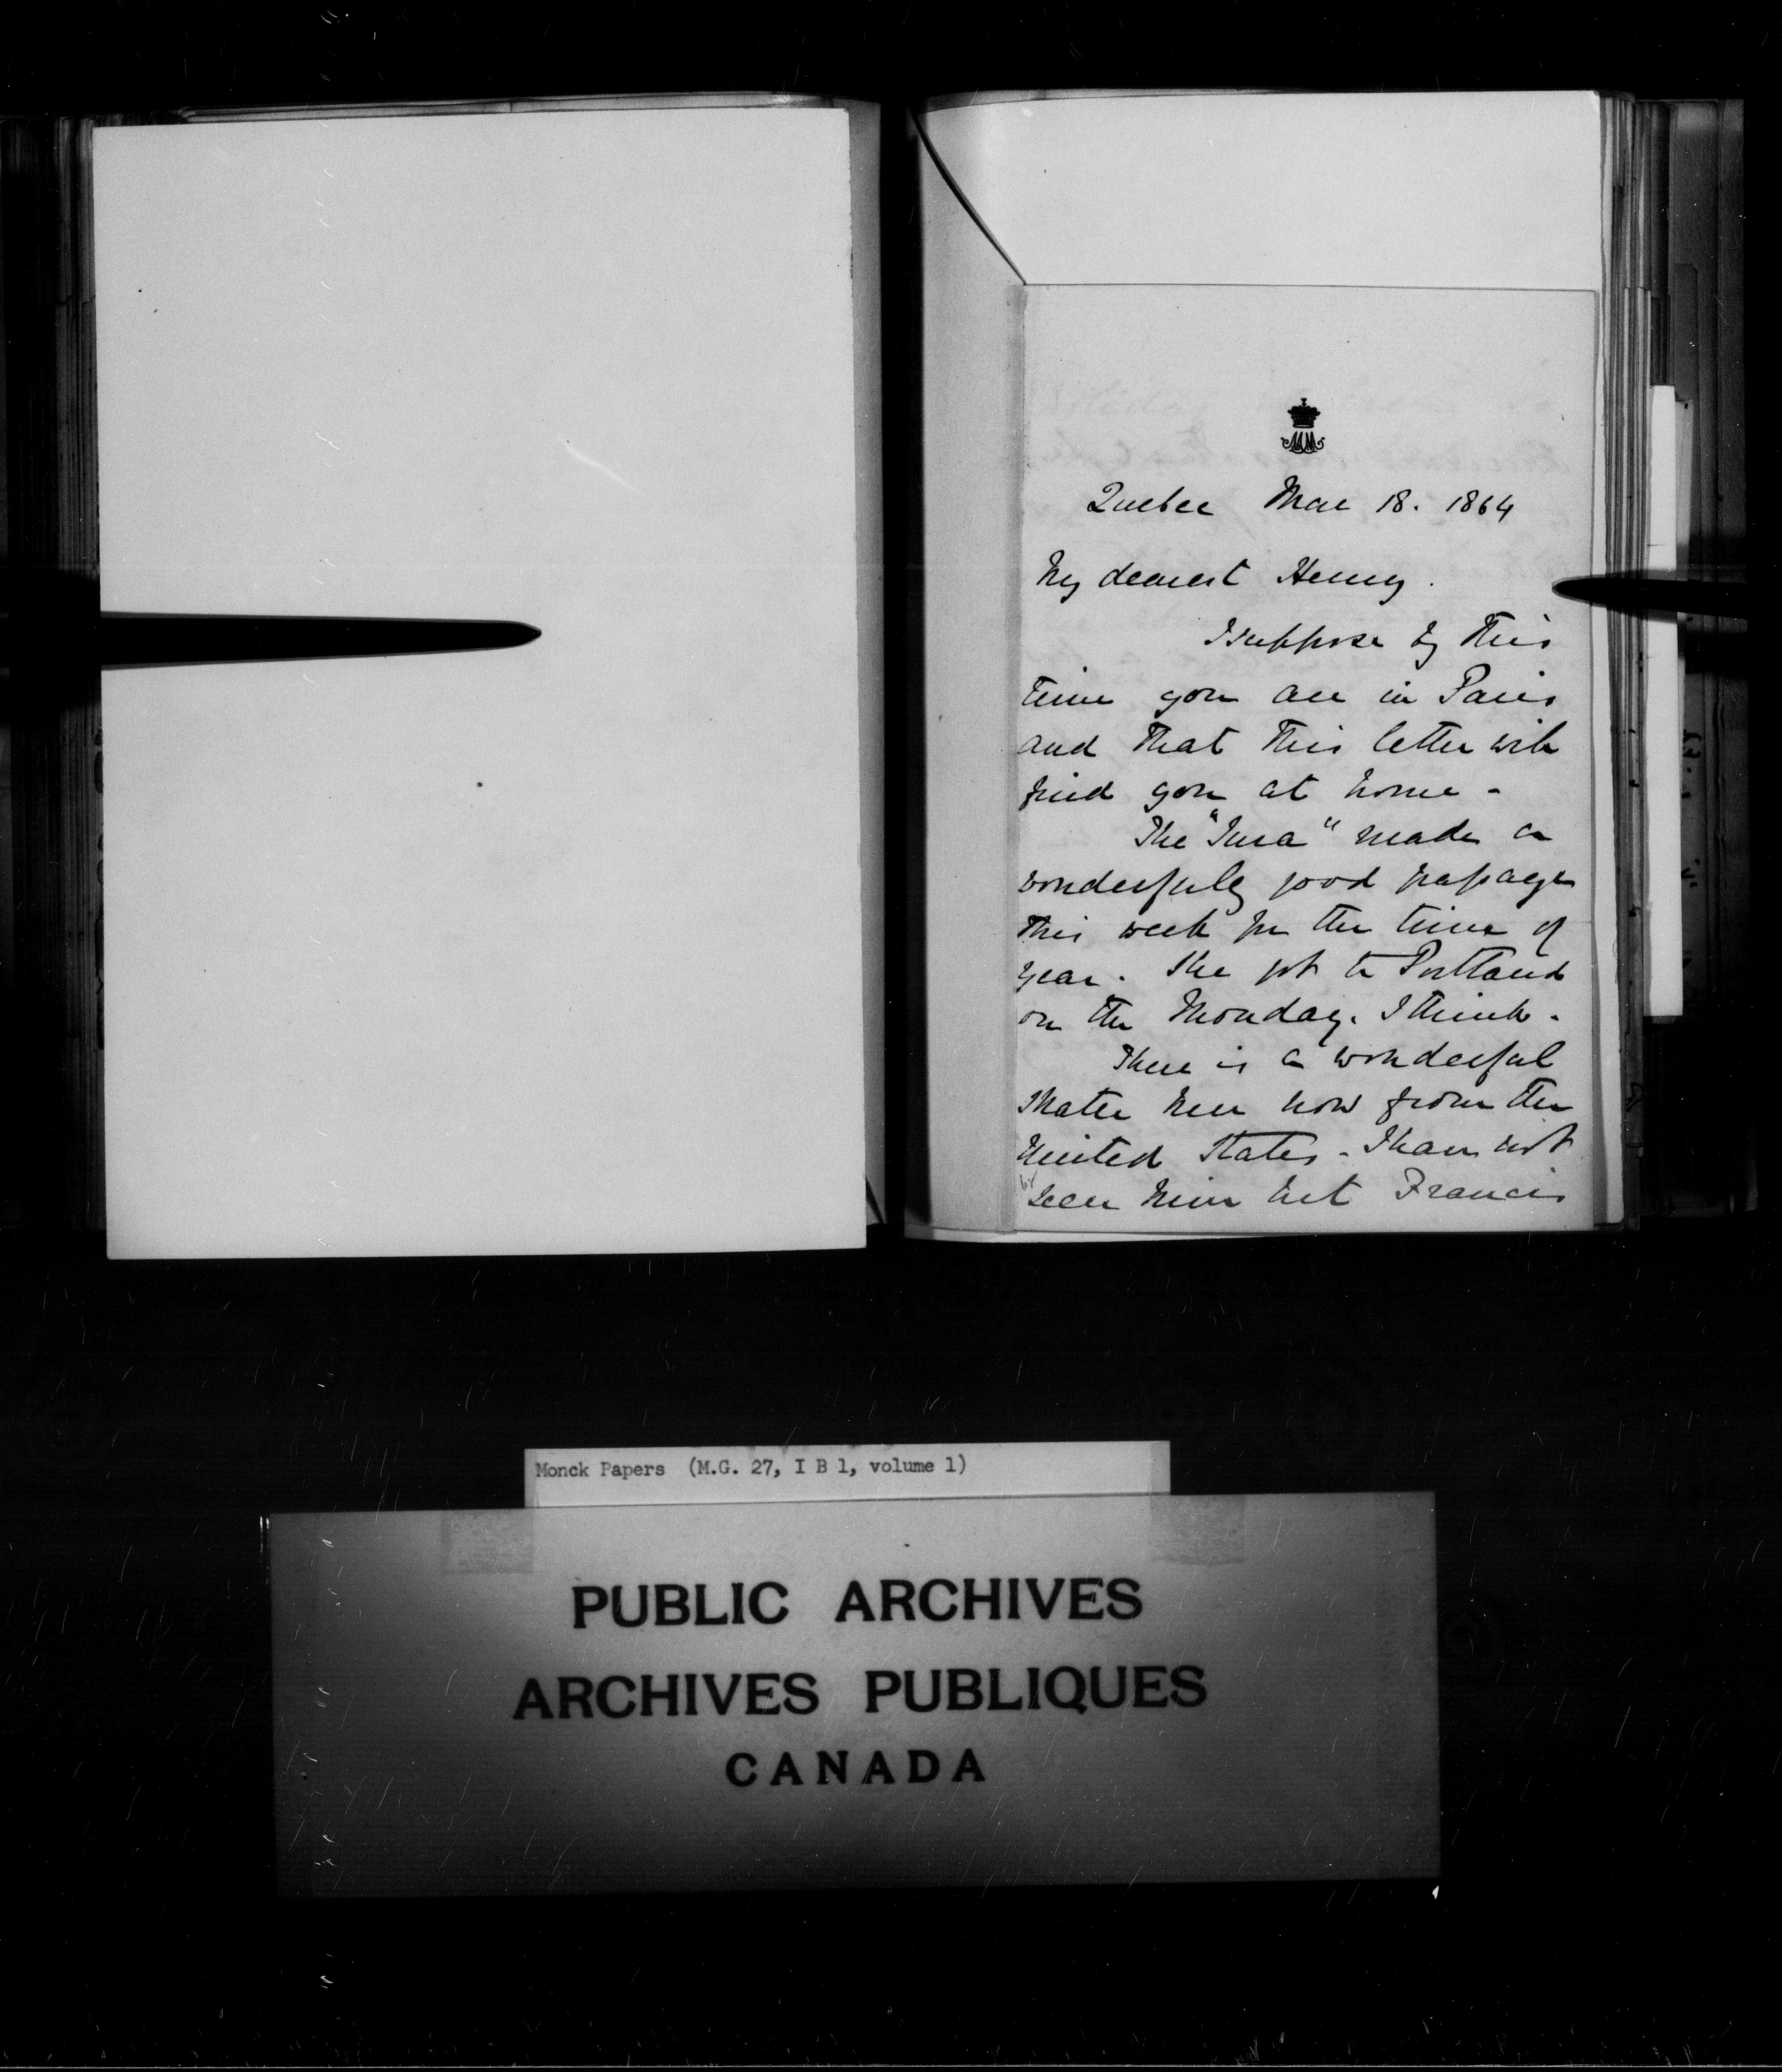 Quebec Mar 18. 1864
My dearest Henry.
I suppose by this
time you are in Paris
and that this letter will
find you at home -
The "Jura" made a
wonderfully good passage
this week for the time of
year. She got to Portland
on the Monday. I think.
There is a wonderful
skater here now from the
United States - I have not
seen him but Francis
Monck Papers (M.G. 27, I B 1, volume 1)
PUBLIC ARCHIVES
ARCHIVES PUBLIQUES
CANADA